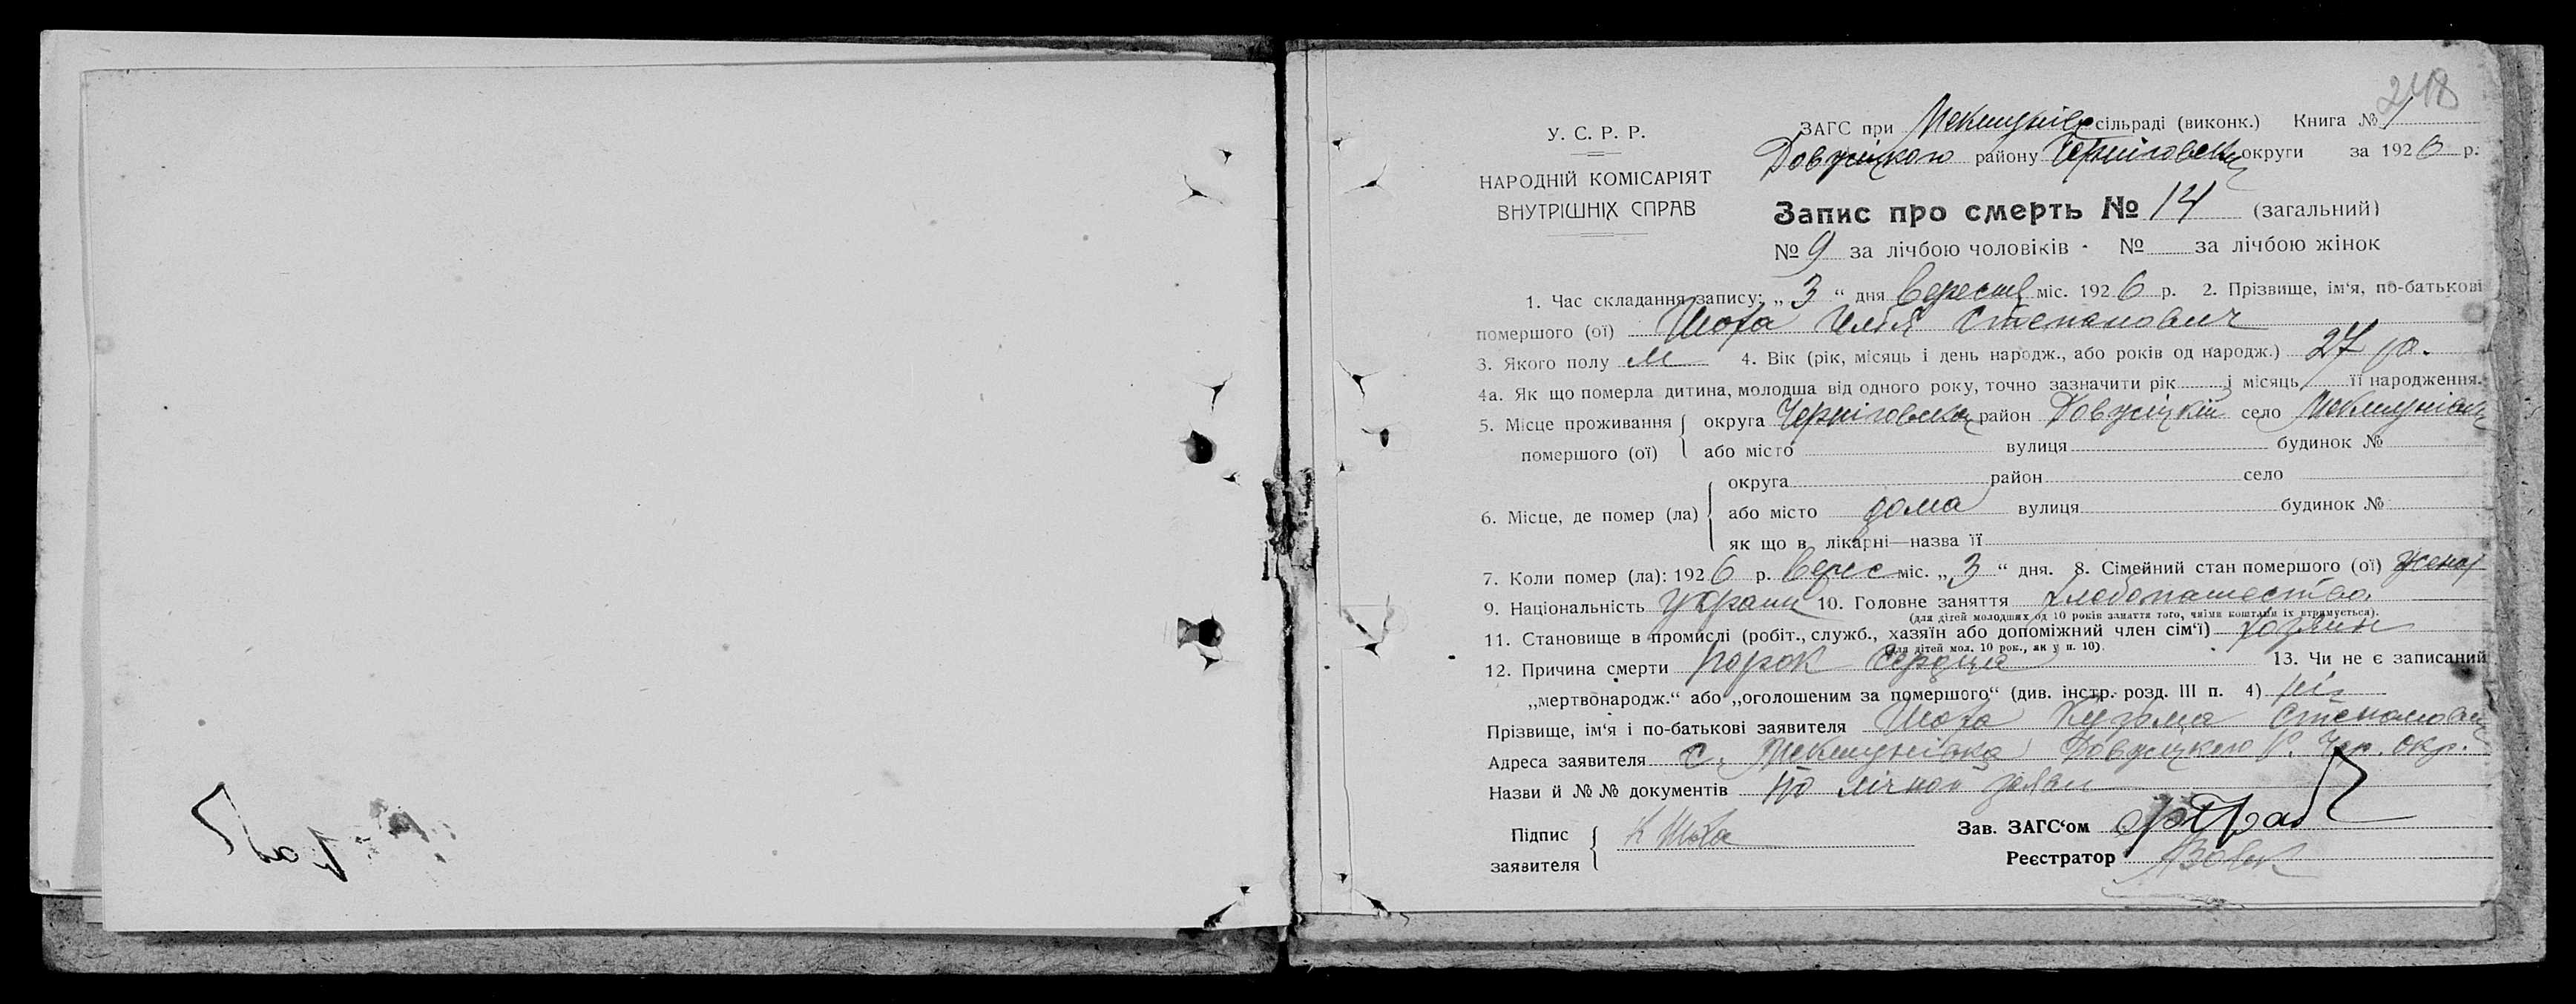 248
У. С. Р. Р.
НАРОДНІЙ КОМІСАРІЯТ
ВНУТРІШНІХ СПРАВ
ЗАГС при сільраді (виконк.) Книга № 1
району Черніговськ округи за 1926 р.
Запис про смерть № 14 (загальний)
№ 9 за лічбою чоловіків - № за лічбою жінок
1. Час складання запису: „ 3 “ дня Вересня міс. 1926 р. 2. Прізвище, ім‘я, по-батькові
помершого (ої) Шоха Илія Степанович
3. Якого полу М 4. Вік (рік, місяць і день народж., або років од народж.) 27 ро.
4а. Як що померла дитина, молодша від одного року, точно зазначити рік і місяць її народження.
5. Місце проживання помершого (ої) округа район село
або місто вулиця будинок №
6. Місце, де помер (ла) округа район село
або місто дома вулиця будинок №
як що в лікарні—назва її
7. Коли помер (ла): 1926 р. Верес міс. „ 3 “ дня. 8. Сімейний стан помершого (ої) женат
9. Національність украин 10. Головне заняття хлебопашество
(для дітей молодших од 10 років заняття того, чиїми коштами їх втримується).
11. Становище в промислі (робіт., служб., хазяїн або допоміжний член сім‘ї) хозяин
(для дітей мол. 10 рок., як у п. 10).
12. Причина смерти порок сердца 13. Чи не є записаний
„мертвонародж.“ або „оголошеним за помершого“ (див. інстр. розд. III п. 4) ні
Прізвище, ім‘я і по-батькові заявителя Шоха Кузьма Степанович
Адреса заявителя с. р. Чер. окр.
Назви й №№ документів по лічной заяви
Підпис заявителя К Шоха
Зав. ЗАГС‘ом
Реєстратор